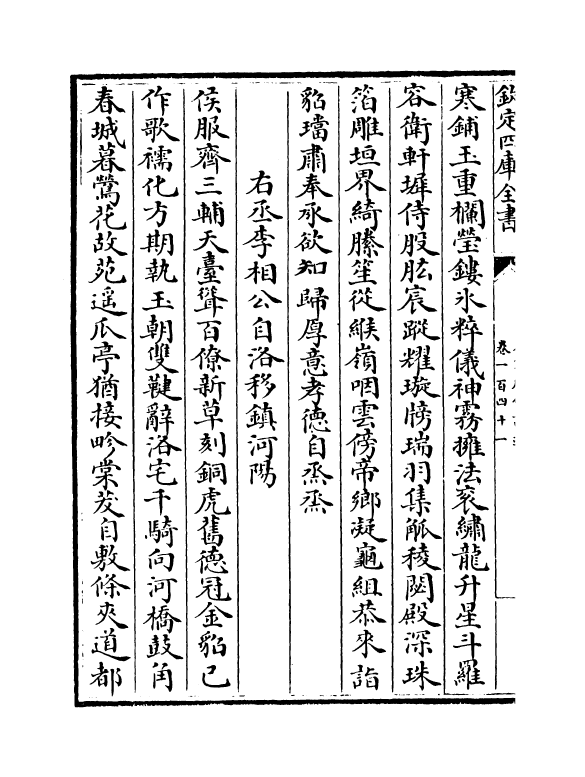 欽定四庫全書
卷一百四十一
寒鋪玉重欄瑩鏤氷粹儀神霧擁法衮繡龍升星斗羅
容衛軒墀侍股肱宸蹤耀璇牓瑞羽集觚稜閟殿深珠
箔雕垣界綺縢笙從緱嶺咽雲傍帝鄉凝龜組恭來詣
貂璫肅奉承欲知歸厚意孝德自烝烝
右丞李相公自洛移鎮河陽
侯服齊三輔天臺聳百僚新草刻銅虎舊德冠金貂已
作歌襦化方期執玉朝雙鞬辭洛宅千騎向河橋鼓角
春城暮鶯花故苑遥瓜亭猶接畛棠茇自敷條夾道都